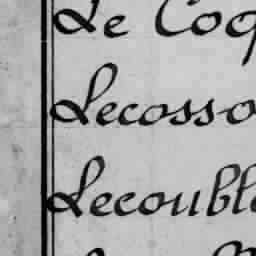 Le Coq
Lecosso
Lecouble